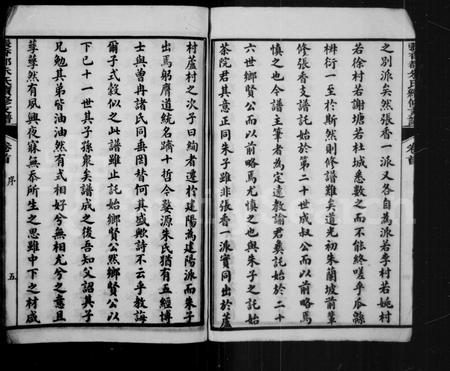 之別派矣然張香一派又各自為派若李村若姚村
若徐村若謝塘若杜城悉數之而不能終嗟乎瓜緜
椒衍一至於斯然則修譜難矣道光初朱蘭坡前輩
修張香支譜託始於第二十世成叔公而以前略焉
慎之也今譜主筆者為定達教諭君彝託始於二十
六世鄉賢公而以前略焉尤慎之也與朱子之託始
茶院君其意正同朱子雖非張香一派實同出於蘆
村蘆村之次子曰絢者遷於建陽為建陽派而朱子
出焉躬膺道統名躋十哲今婺源朱氏猶有五經博
士與曾冉諸氏同垂罔替何其盛歟詩不云乎教誨
爾子式穀似之此譜雖止託始鄉賢公然鄉賢公以
下已十一世其子孫衆矣譜成之後吾知父詔其子
兄勉其弟皆油油然有式相好兮無相尤兮之意且
蓴蓴然有夙興夜寐無忝所生之思雖中下之材咸
卷首
序
五
卷首